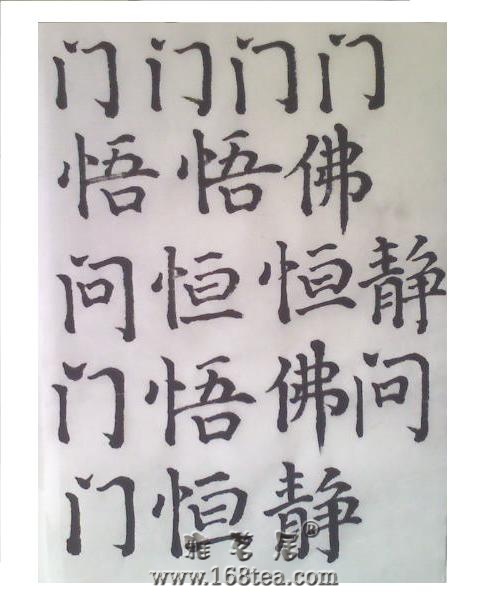 门门门门
悟悟佛
问恒恒静
门悟佛问
门恒静
雅茗居®
www.168tea.com